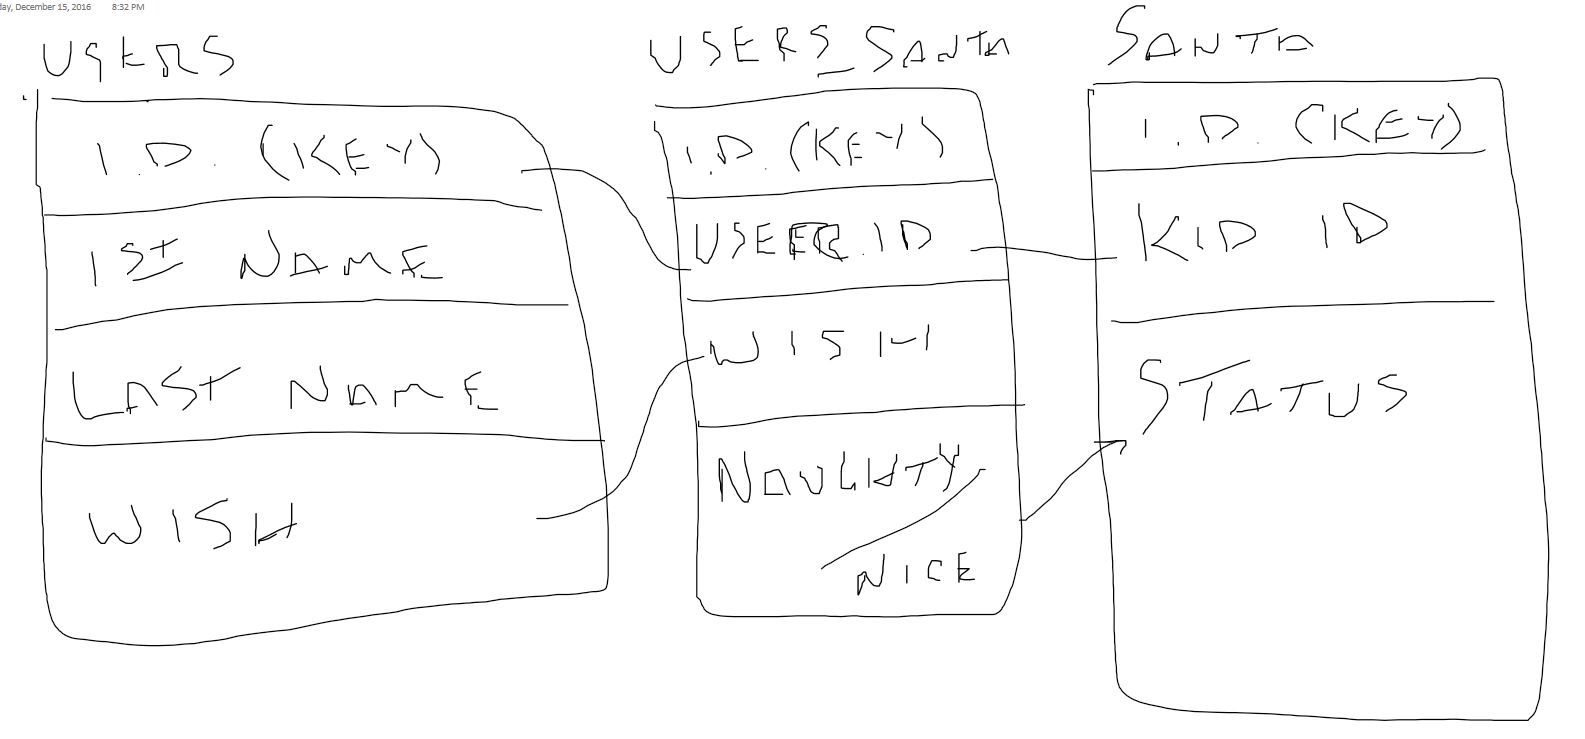 day, December 15, 2016 8:32 PM
USERS
I.D. (KEY)
1st NAME
LAST NAME
WISH
USERS_SANTA
I.D. (KEY)
USER ID
WISH
NAUGHTY/
NICE
SANTA
I.D. (KEY)
KID ID
STATUS